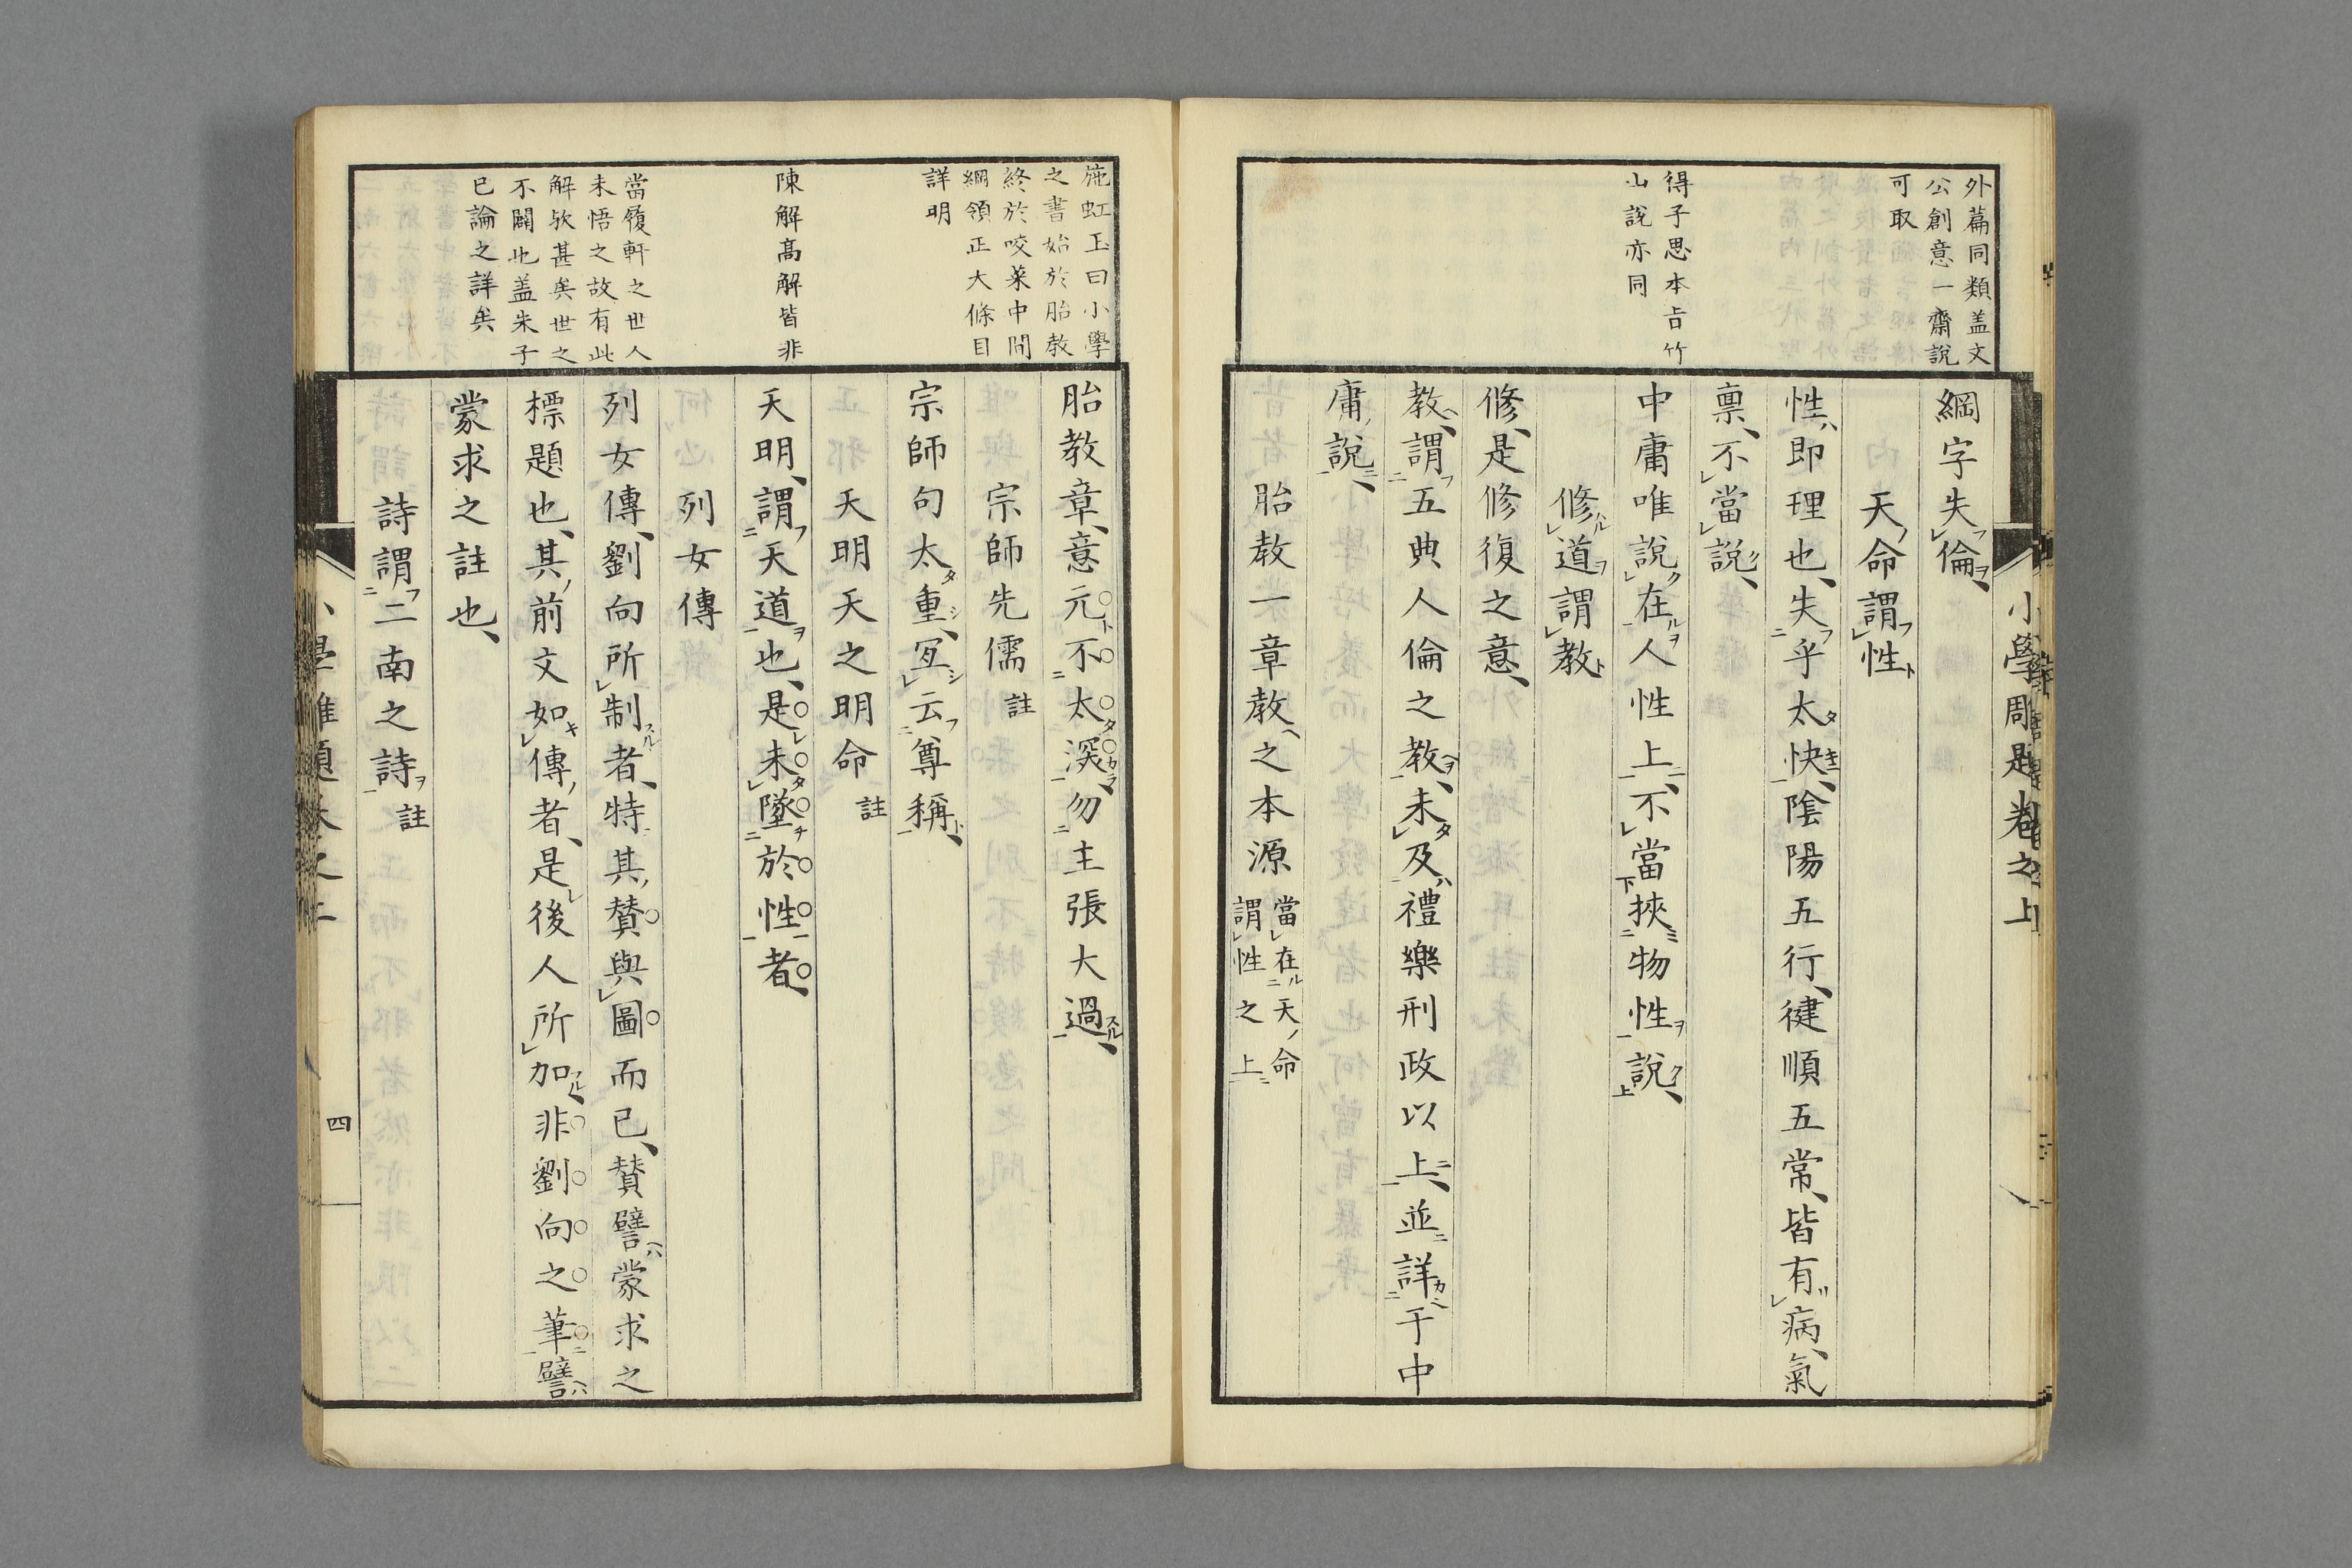 外萹同類盖文
公創意一齋説
可取
得子思本㫖竹
山説亦同
綱字失倫
天命謂性
性即理也失乎太快陰陽五行健順五常皆有病氣
禀不當説
中庸唯説在人性上不當挾物性説
修道謂教
修是修復之意
教謂五典人倫之教未及禮樂刑政以上並詳于中
庸説
胎教一章教之本源 當在天命
謂性之上
施虹玉曰小學
之書始於胎教
終於咬菜中間
綱領正大條目
詳明
陳解高解皆非
當履軒之世人
未悟之故有此
解欤甚矣世之
不闢也盖朱子
已論之詳矣
胎教章意元不太深勿主張大過
宗師先儒 註
宗師句太重冝云尊稱
天明天之明命 註
天明謂天道也是未墜於性者
列女傳
列女傳劉向所制者特其賛與圖而已賛譬蒙求之
標題也其前文如傳者是後人所加非劉向之筆譬
蒙求之註也
詩謂二南之詩 註
四